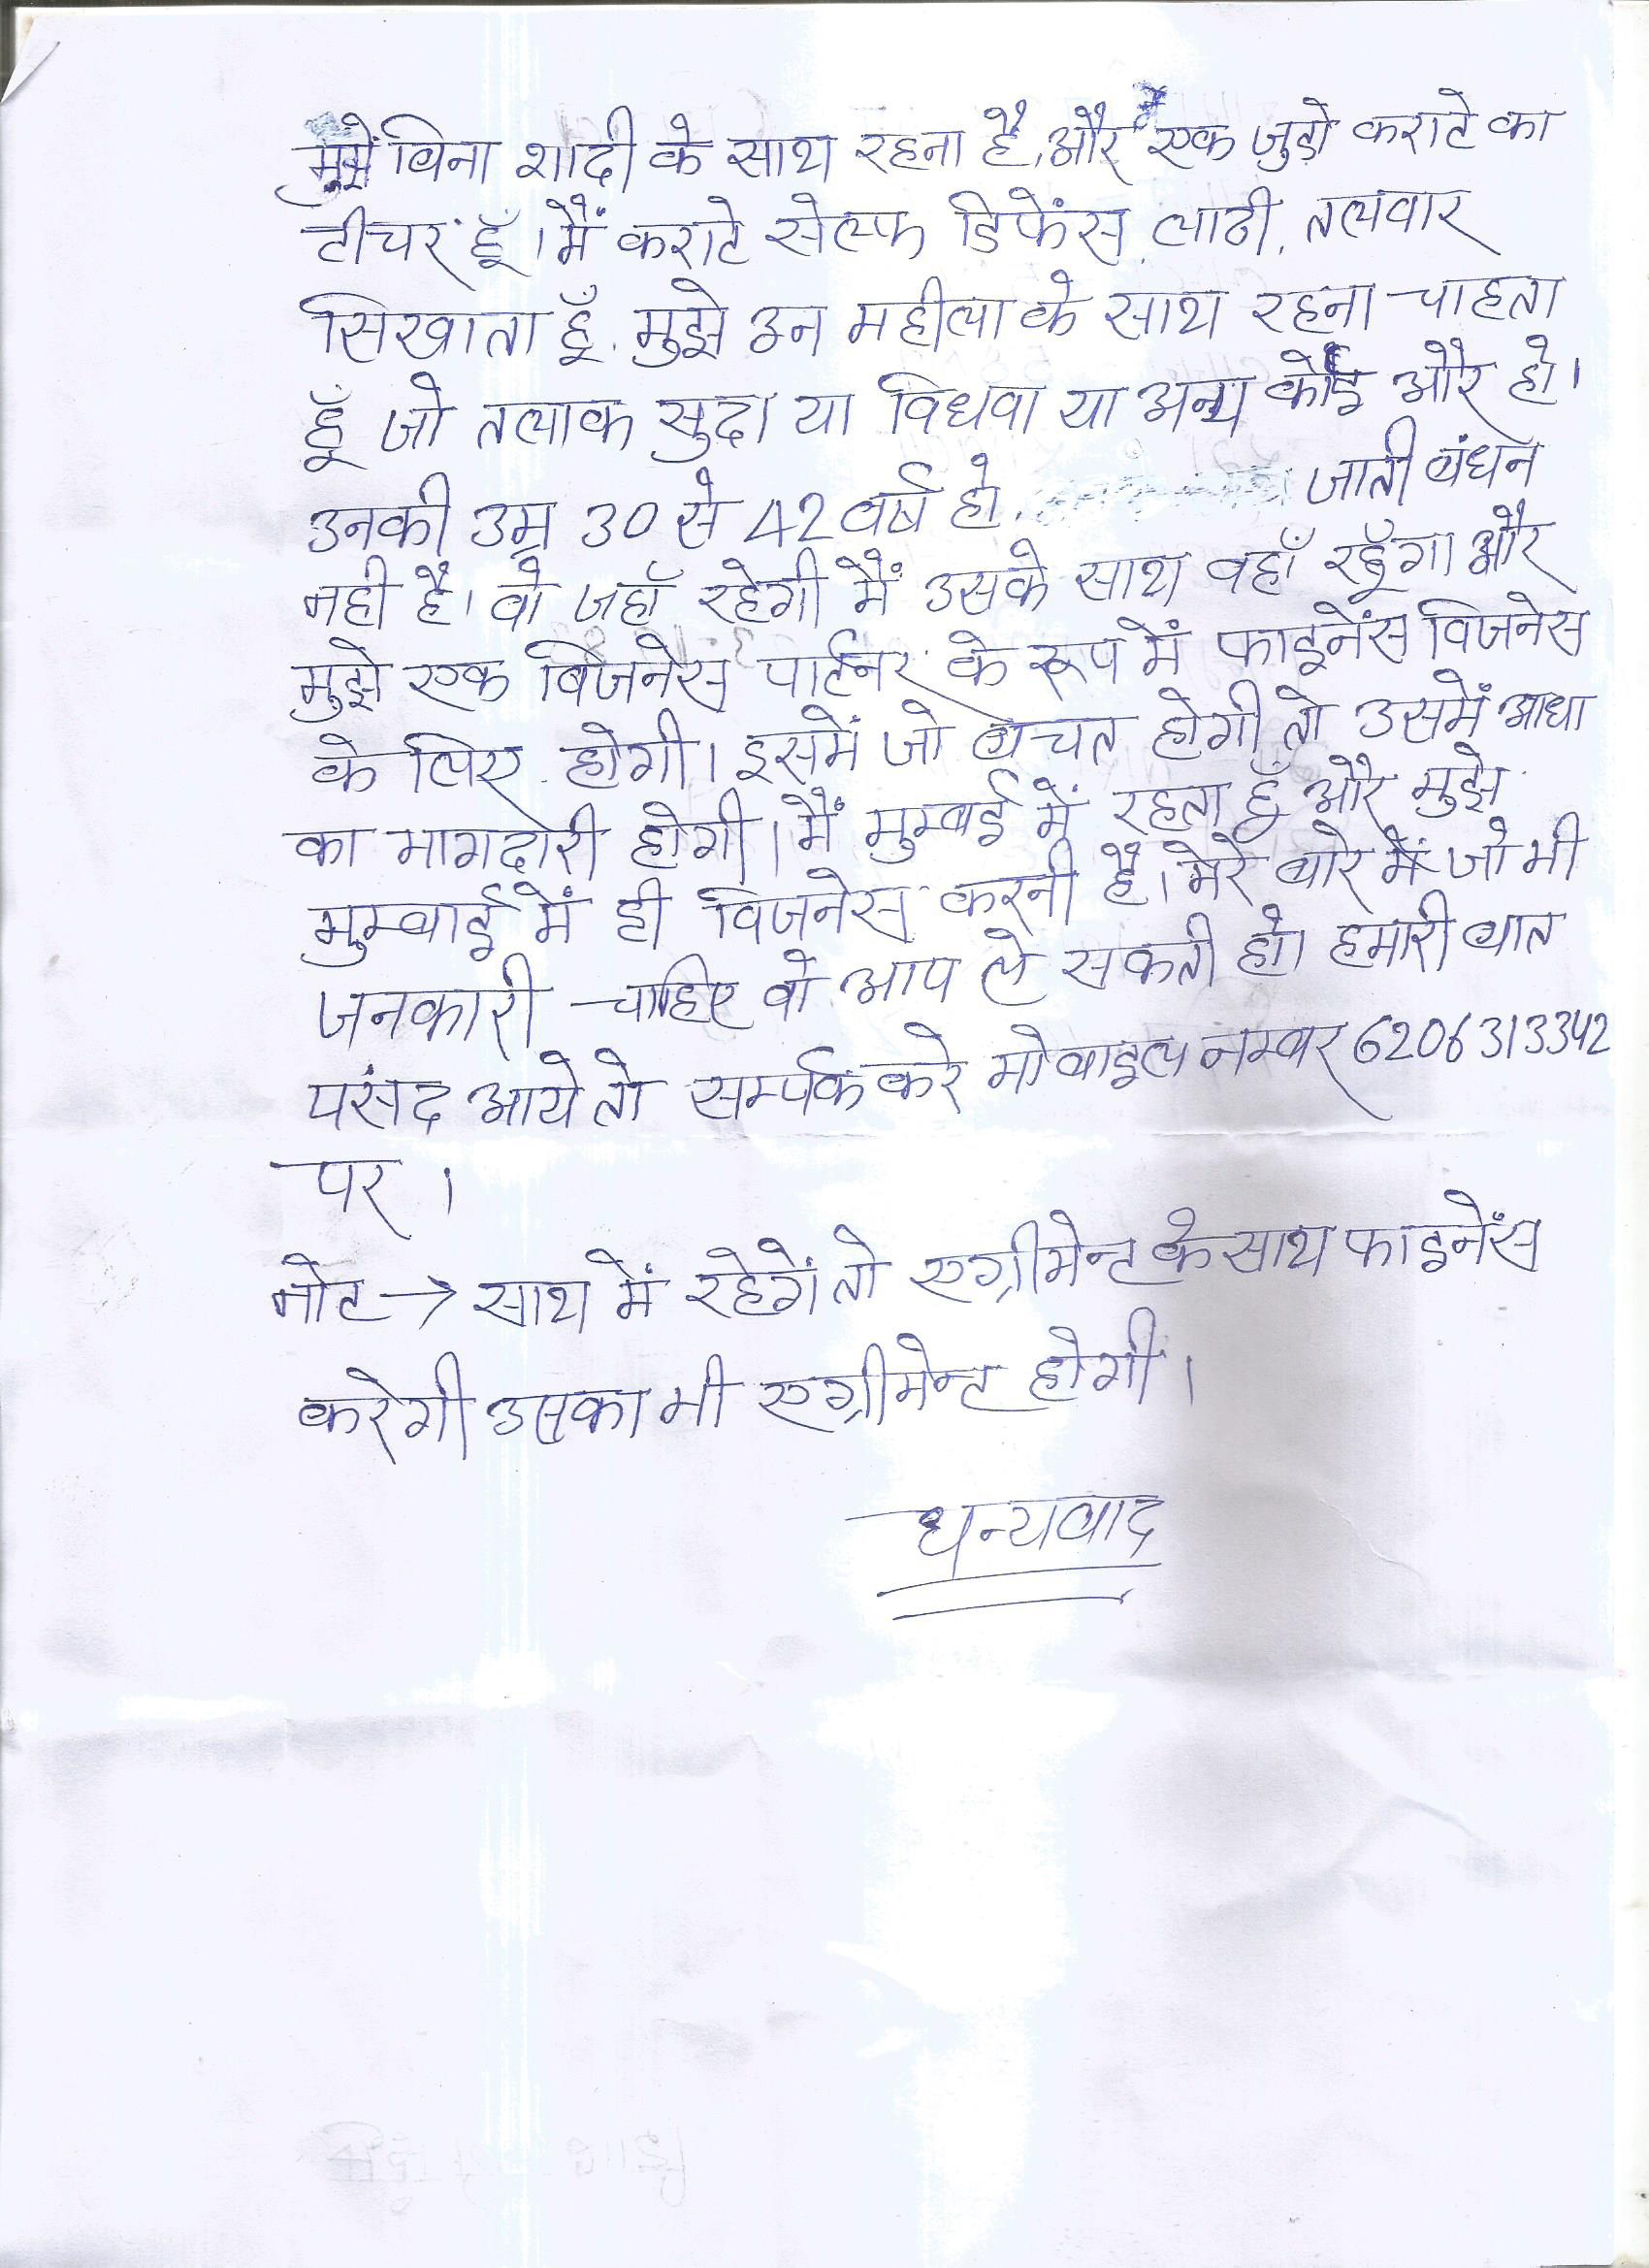 मुझे बिना शादी के साथ रहना है, और एक जुडो कराटे का
टीचर हूँ। मैं कराटे सेल्फ डिफेंस, लाठी, तलवार
सिखाता हूँ. मुझे उन महीला के साथ रहना चाहता
हूँ जो तलाक सुदा या विधवा या अन्य कोई और हो।
उनकी उम्र 30 से 42 वर्ष हो, जाती बंधन
नही है। वो जहाँ रहेगी मैं उसके साथ वहाँ रहूँगा और
मुझे एक बिजनेस पार्टनर के रूप में फाइनेंस विजनेस
के लिए होगी। इसमें जो बचत होगी तो उसमें आधा
का भागदारी होगी। मैं मुम्बई में रहता हूँ और मुझे
मुम्बाई में ही विजनेस करनी है। मेरे बारे में जो भी
जनकारी चाहिए वो आप ले सकती हो। हमारी बात
पसंद आये तो सर्म्पक करे मोबाइल नम्बर 6206313342
पर।
नोट → साथ में रहेगें तो एग्रीमेन्ट के साथ फाइनेंस
करेगी उसका भी एग्रीमेन्ट होगी।
धन्यवाद